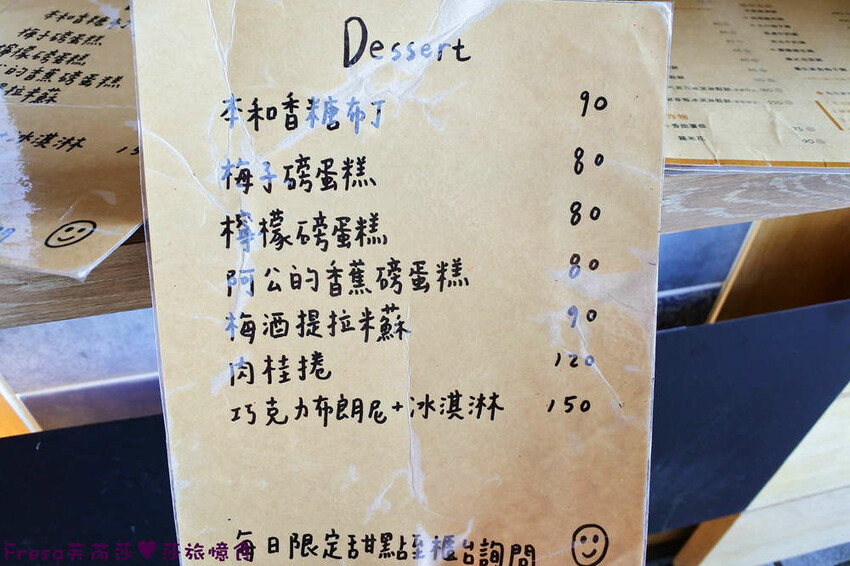 Dessert
本和香糖布丁 90
梅子磅蛋糕 80
檸檬磅蛋糕 80
阿公的香蕉磅蛋糕 80
梅酒提拉米蘇 90
肉桂捲 120
巧克力布朗尼+冰淇淋 150
每日限定甜點至櫃台詢問
本和香糖布丁
梅子磅蛋糕
檸檬磅蛋糕
公的香蕉磅蛋糕
提拉米蘇
冰淇淋 15
Fresa芙芮莎♥莎旅憶傳